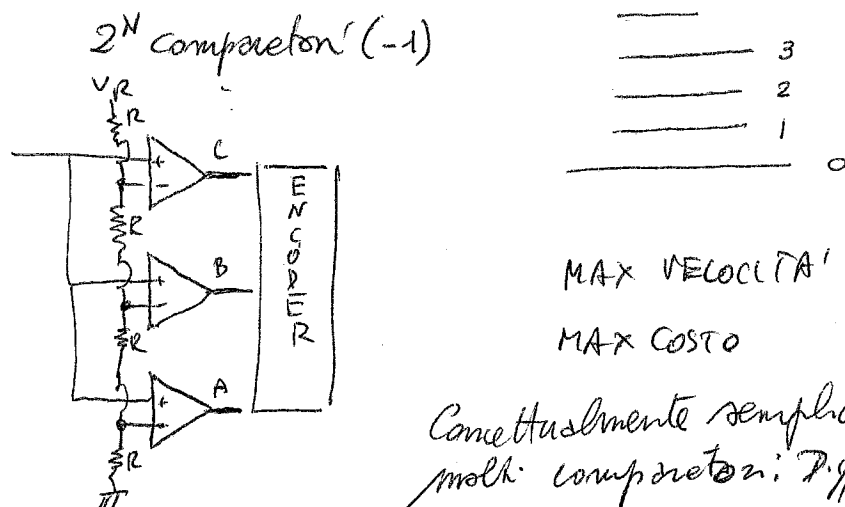 2^N comparatori (-1)
3
2
1
0
V_R
R
+
-
C
R
+
-
B
R
+
-
A
R
ENCODER
MAX VELOCITA'
MAX COSTO
Concettualmente semplic
molti comparatori: